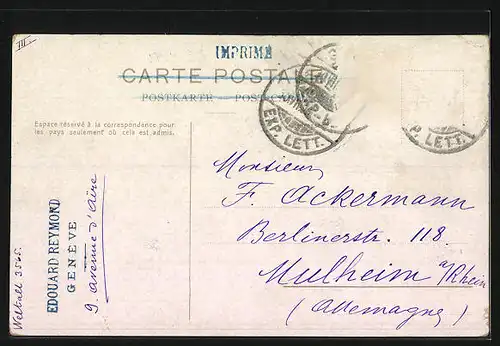 III.
IMPRIMÉ
CARTE POSTALE
POSTKARTE POSTCARD
EXP. LETT.
P. LETT.
Espace réservé à la correspondance pour
les pays seulement où cela est admis.
Monsieur
F. Ackermann
Berlinerstr. 118.
Mulheim a/Rhein
(Allemagne)
EDOUARD REYMOND
GENÈVE
9. avenue d'Aïre
Weltall 3565.